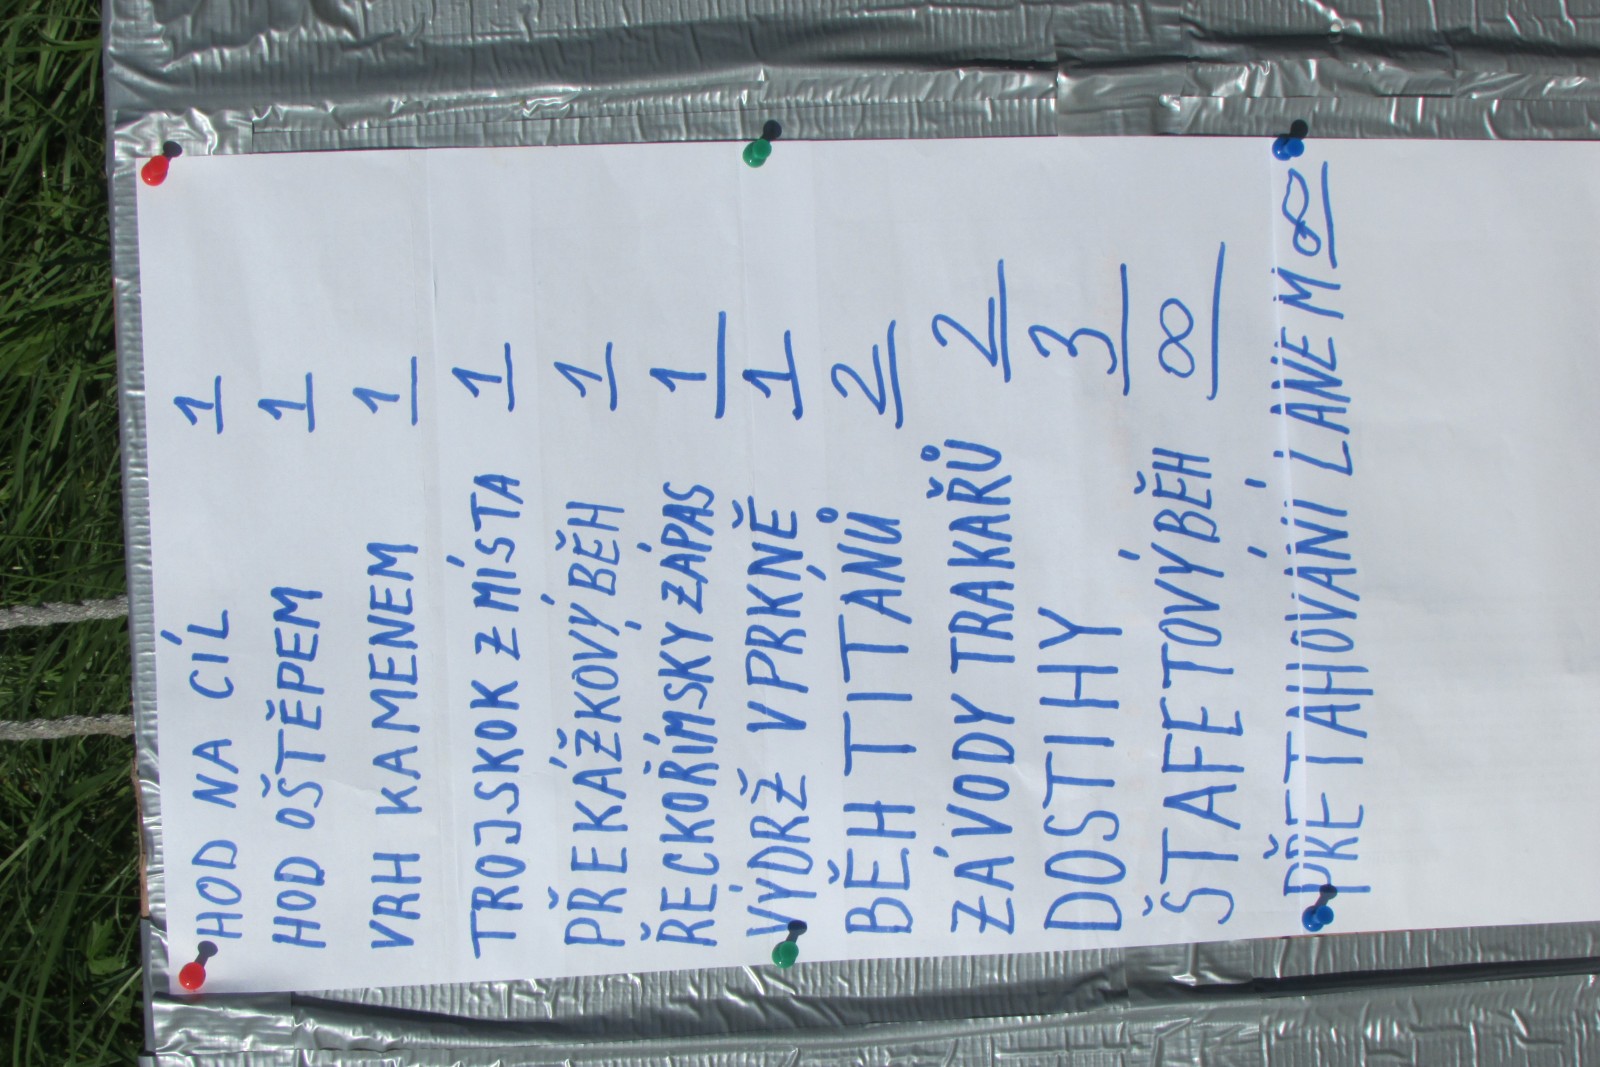 HOD NA CÍL 1
HOD OŠTĚPEM 1
VRH KAMENEM 1
TROJSKOK Z MÍSTA 1
PŘEKÁŽKOVÝ BĚH 1
ŘECKOŘÍMSKÝ ZÁPAS 1
VÝDRŽ V PRKNĚ 1
BĚH TITÁNŮ 2
ZÁVODY TRAKAŘŮ 2
DOSTIHY 3
ŠTAFETOVÝ BĚH ∞
PŘETAHOVÁNÍ LANEM ∞